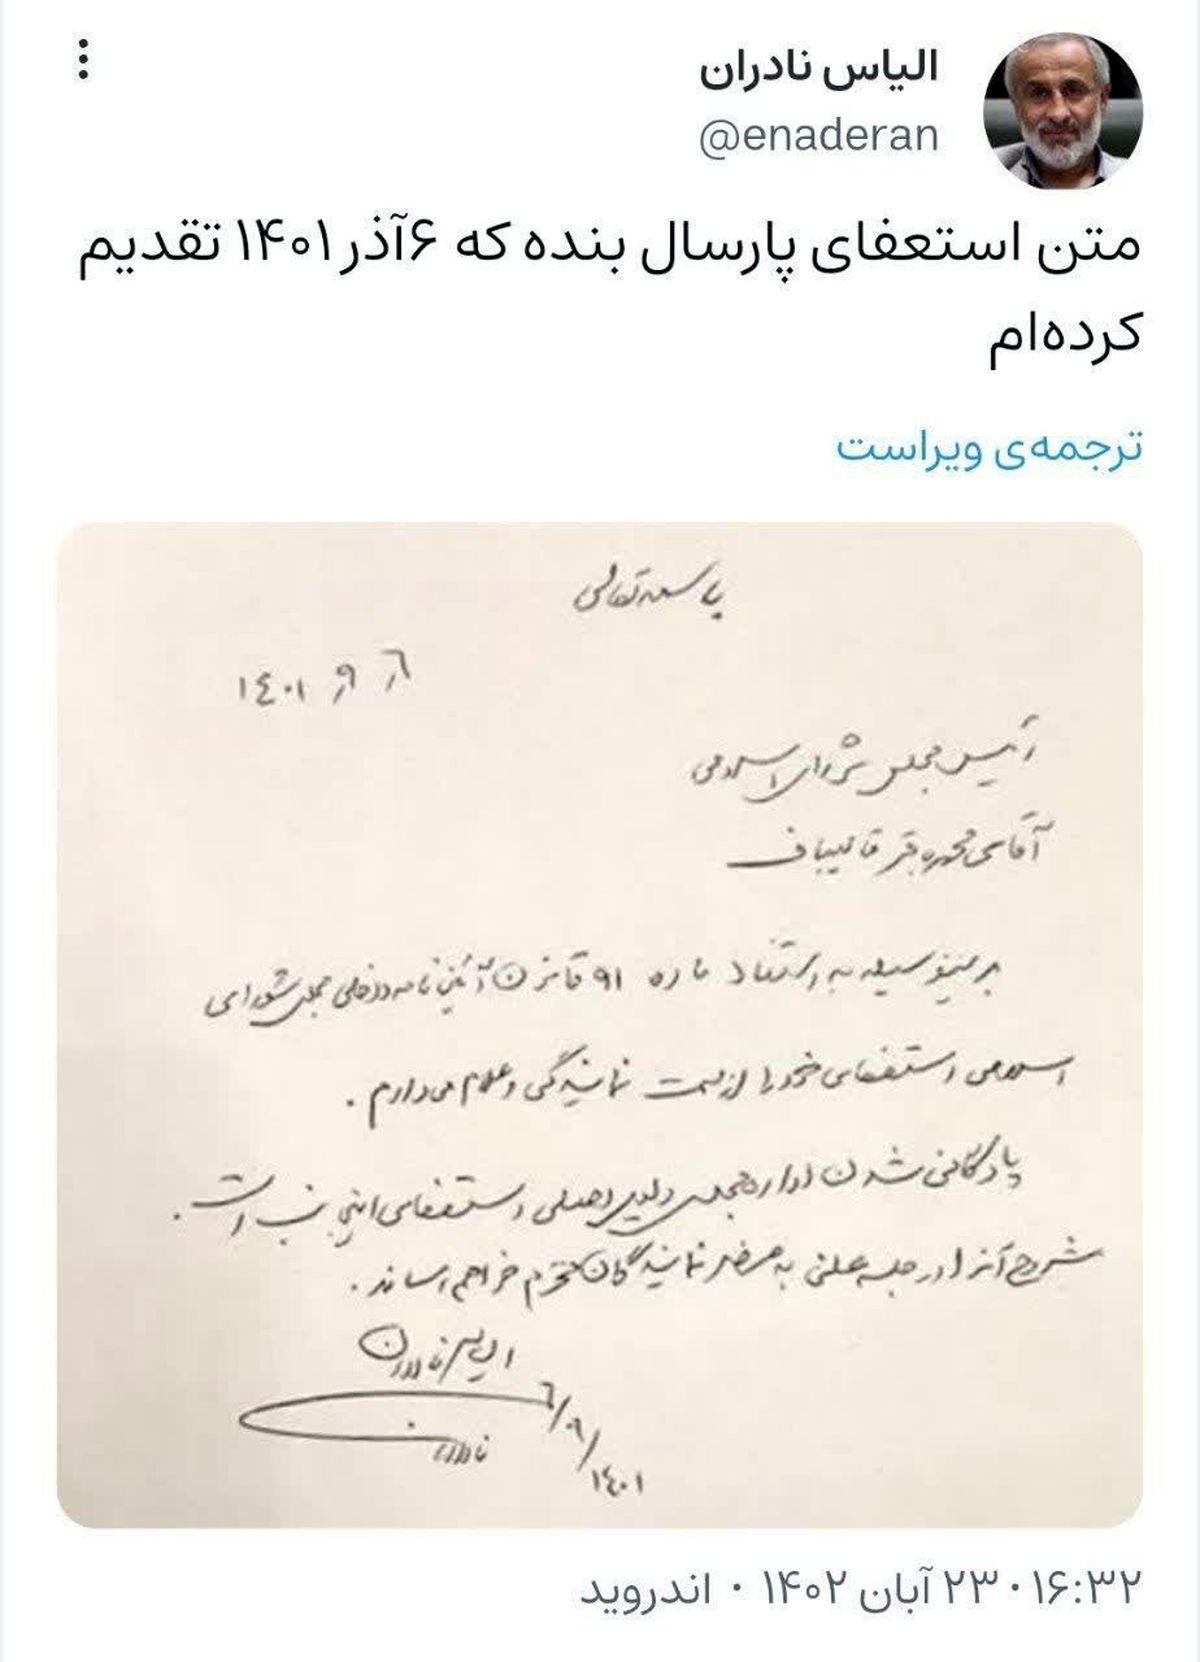 الیاس نادران
@enaderan
متن استعفای پارسال بنده که ۶آذر ۱۴۰۱ تقدیم
کرده‌ام
ترجمه‌ی ویراست
باسمه‌تعالی
۶ ر ۹ ر ۱۴۰۱
رئیس مجلس شورای اسلامی
آقای محمدباقر قالیباف
بدینوسیله به استناد ماده ۹۱ قانون آئین نامه داخلی مجلس شورای
اسلامی استعفای خود را از سمت نمایندگی اعلام می‌دارم .
پادگانی شدن اداره مجلس دلیل اصلی استعفای اینجانب است .
شرح آنرا در جلسه علنی به محضر نمایندگان محترم خواهم رساند .
الیاس نادران
۶/۹/۱۴۰۱
نادران
۱۶:۳۲ · ۲۳ آبان ۱۴۰۲ · اندروید